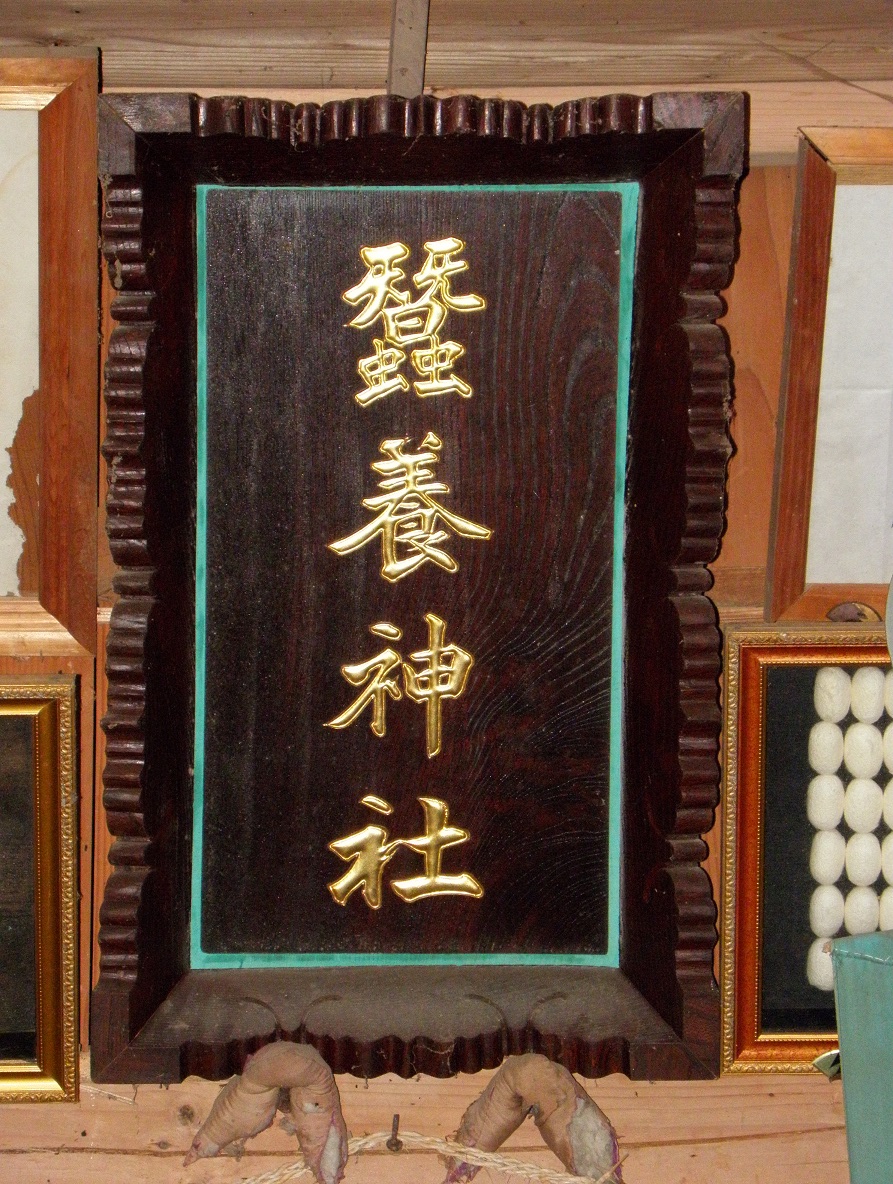 蠶養神社